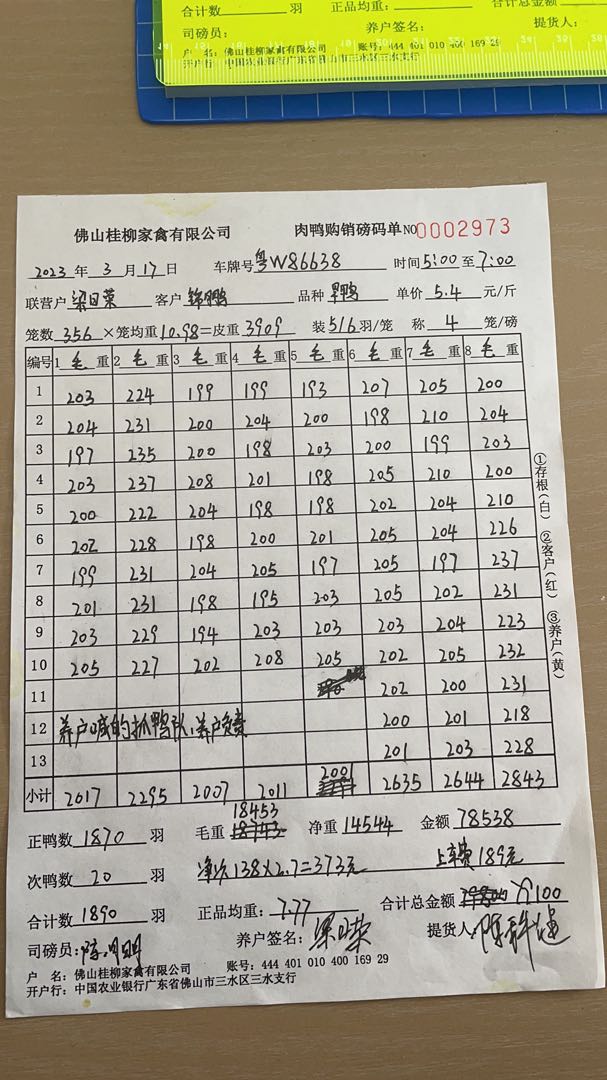 合计数 羽 正品均重: 合计总金额
司磅员: 养户签名: 提货人:
户 名: 佛山桂柳家禽有限公司 账号: 444 401 010 400 169 29
开户行: 中国农业银行广东省佛山市三水区三水支行
佛山桂柳家禽有限公司 肉鸭购销磅码单 NO 0002973
2023 年 3 月 17 日 车牌号 粤W86638 时间 5:00 至 7:00
联营户 梁日荣 客户 锦鹏 品种 旱鸭 单价 5.4 元/斤
笼数 356 ×笼均重 10.98 =皮重 3909 装 5/6 羽/笼 称 4 笼/磅
编号 1 毛 重 2 毛 重 3 毛 重 4 毛 重 5 毛 重 6 毛 重 7 毛 重 8 毛 重
1 203 224 199 199 193 207 205 200
2 204 231 200 204 200 198 210 204
3 197 235 200 198 203 200 199 203
4 203 237 208 201 198 205 210 200
5 200 222 204 198 198 202 204 210
6 202 228 198 200 201 205 204 226
7 199 231 204 205 197 205 197 237
8 201 231 198 195 203 205 202 231
9 203 229 194 203 203 203 204 223
10 205 227 202 208 205 202 205 232
11 202 200 231
12 养户喊的抓鸭队,养户免责 200 201 218
13 201 203 228
小计 2017 2295 2007 2011 2001 2635 2644 2843
①存根(白) ②客户(红) ③养户(黄)
正鸭数 1870 羽 毛重 18453 净重 14544 金额 78538
次鸭数 20 羽 净次138×2.7=373元 上车费189元
合计数 1890 羽 正品均重: 7.77 合计总金额 79100
司磅员: 养户签名: 梁日荣 提货人:
户 名: 佛山桂柳家禽有限公司 账号: 444 401 010 400 169 29
开户行: 中国农业银行广东省佛山市三水区三水支行